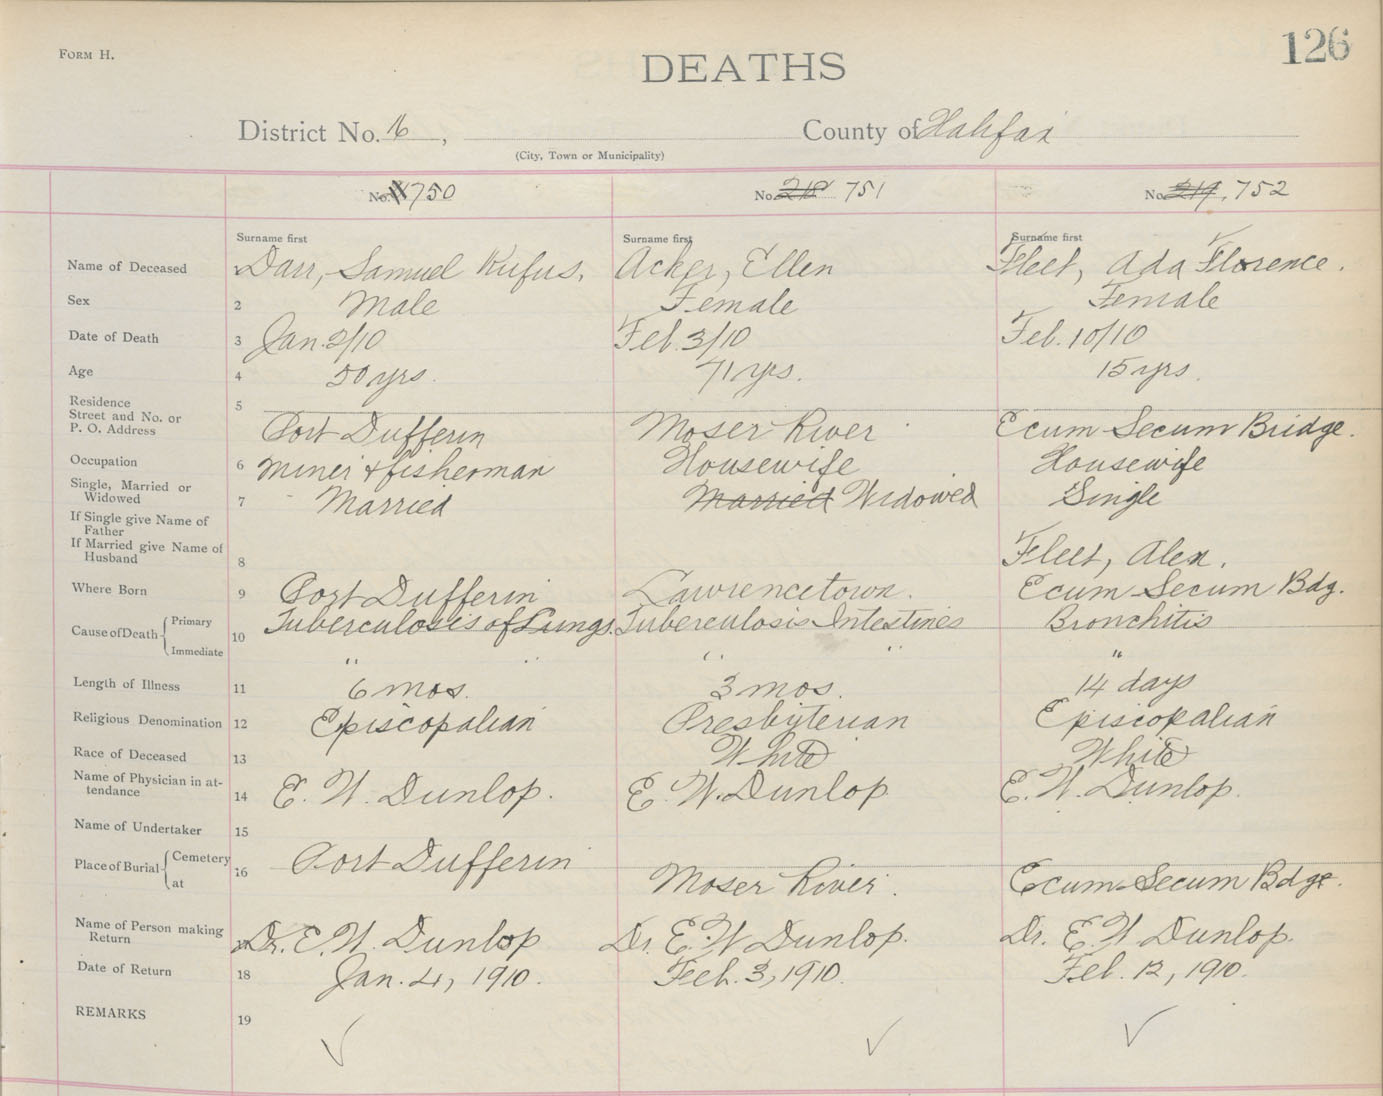 FORM H.
126
DEATHS
District No. 16, County of Halifax
(City, Town or Municipality)
No. 750 No. 218 751 No. 219. 752
Surname first Surname first Surname first
Name of Deceased Darr, Samuel Rufus. Acker, Ellen Fleet, Ada Florence.
Sex 2 Male Female Female
Date of Death 3 Jan. 2/10 Feb. 3/10 Feb. 10/10
Age 4 50 yrs. 71 yrs. 15 yrs.
Residence
Street and No. or
P. O. Address 5 Port Dufferin Moser River Ecum Secum Bridge.
Occupation 6 Miner & fisherman Housewife Housewife
Single, Married or
Widowed 7 Married Married Widowed Single
If Single give Name of
Father
If Married give Name of
Husband 8 Fleet, Alex.
Where Born 9 Port Dufferin Lawrencetown. Ecum Secum Bdg.
Cause of Death { Primary 10 Tuberculosis of Lungs. Tuberculosis Intestines Bronchitis
Immediate " " " " "
Length of Illness 11 6 mos. 3 mos. 14 days
Religious Denomination 12 Episcopalian Presbyterian Episcopalian
Race of Deceased 13 White White
Name of Physician in at-
tendance 14 E. W. Dunlop. E. W. Dunlop E. W. Dunlop.
Name of Undertaker 15
Place of Burial { Cemetery
at 16 Port Dufferin Moser River. Ecum Secum Bdge.
Name of Person making
Return 17 Dr. E. W. Dunlop Dr. E. W Dunlop. Dr. E. W Dunlop.
Date of Return 18 Jan. 4, 1910. Feb. 3, 1910. Feb. 12, 1910.
REMARKS 19